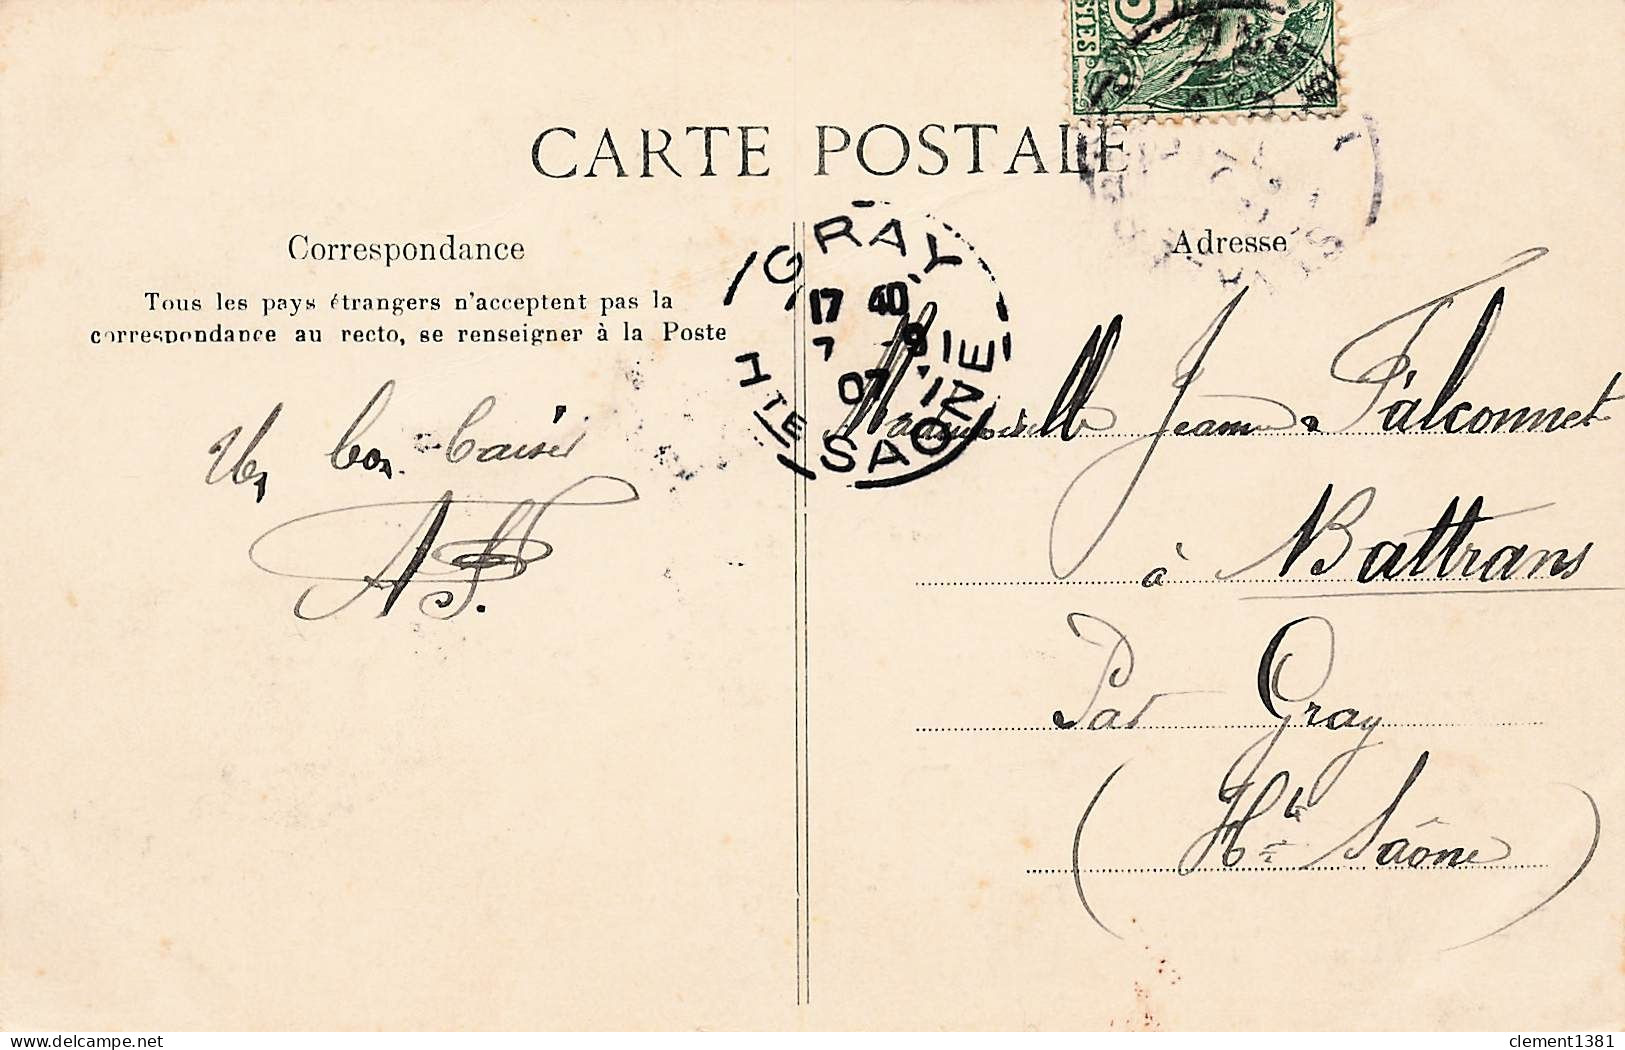 CARTE POSTALE
Correspondance
Tous les pays étrangers n'acceptent pas la
correspondance au recto, se renseigner à la Poste
Un bon baiser
AF.
Adresse
GRAY
17 40
7 -9
07
HTE SAÔNE
Mademoiselle Jeanne Falconnet
à Battrans
Par Gray
(Hte Saône)
delcampe.net
clement1381